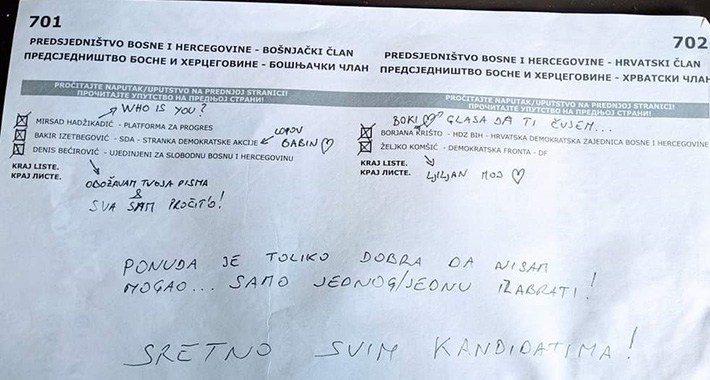 701
PREDSJEDNIŠTVO BOSNE I HERCEGOVINE - BOŠNJAČKI ČLAN
ПРЕДСЈЕДНИШТВО БОСНЕ И ХЕРЦЕГОВИНЕ - БОШЊАЧКИ ЧЛАН
PROČITAJTE NAPUTAK/UPUTSTVO NA PREDNJOJ STRANICI!
ПРОЧИТАЈТЕ УПУТСТВО НА ПРЕДЊОЈ СТРАНИ!
WHO IS YOU?
MIRSAD HADŽIKADIĆ - PLATFORMA ZA PROGRES
BAKIR IZETBEGOVIĆ - SDA - STRANKA DEMOKRATSKE AKCIJE
LOPOV
BABIN ♡
DENIS BEĆIROVIĆ - UJEDINJENI ZA SLOBODNU BOSNU I HERCEGOVINU
KRAJ LISTE.
КРАЈ ЛИСТЕ.
OBOŽAVAM TVOJA PISMA
&
SVA SAM PROČIT'O!
702
PREDSJEDNIŠTVO BOSNE I HERCEGOVINE - HRVATSKI ČLAN
ПРЕДСЈЕДНИШТВО БОСНЕ И ХЕРЦЕГОВИНЕ - ХРВАТСКИ ЧЛАН
PROČITAJTE NAPUTAK/UPUTSTVO NA PREDNJOJ STRANICI!
ПРОЧИТАЈТЕ УПУТСТВО НА ПРЕДЊОЈ СТРАНИ!
BOKI ♡ GLASA DA TI ČUJEM...
BORJANA KRIŠTO - HDZ BIH - HRVATSKA DEMOKRATSKA ZAJEDNICA BOSNE I HERCEGOVINE
ŽELJKO KOMŠIĆ - DEMOKRATSKA FRONTA - DF
KRAJ LISTE.
КРАЈ ЛИСТЕ.
LJILJAN MOJ ♡
PONUDA JE TOLIKO DOBRA DA NISAM
MOGAO... SAMO JEDNOG/JEDNU IZABRATI!
SRETNO SVIM KANDIDATIMA!